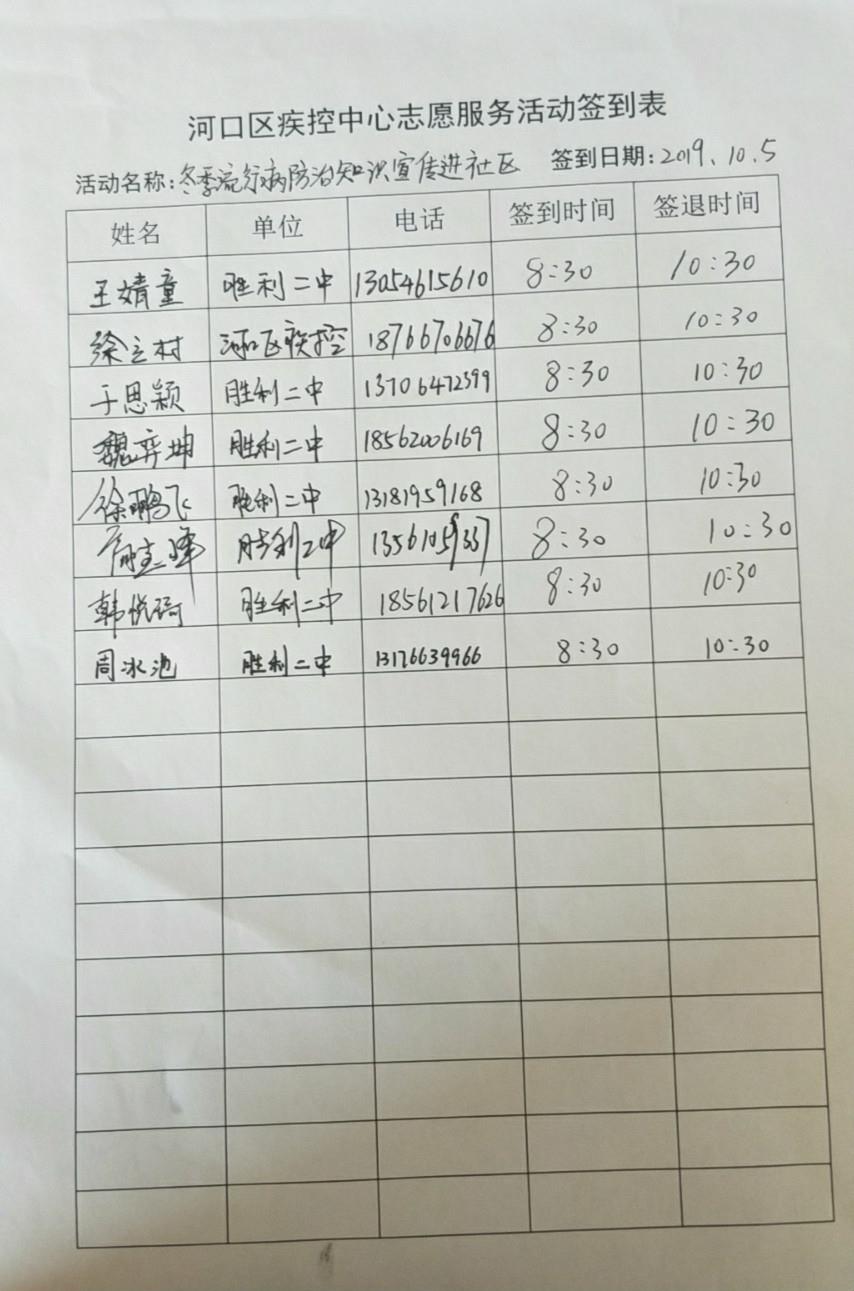 河口区疾控中心志愿服务活动签到表
活动名称:冬季流行病防治知识宣传进社区 签到日期:2019、10.5
姓名 单位 电话 签到时间 签退时间
王婧童 胜利二中 13054615610 8:30 10:30
徐立村 河口区疾控 18766706676 8:30 10:30
于思颖 胜利二中 13706472599 8:30 10:30
魏弈坤 胜利二中 18562006169 8:30 10:30
徐鹏飞 胜利二中 13181959168 8:30 10:30
胜利二中 8:30 10:30
韩悦琦 胜利二中 18561217626 8:30 10:30
周冰池 胜利二中 13176639966 8:30 10:30